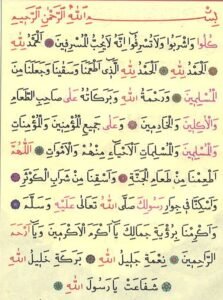 بِسْمِ اللّٰهِ الرَّحْمٰنِ الرَّحِيمِ
كُلُوا وَاشْرَبُوا وَلَا تُسْرِفُوا اِنَّهُ لَا يُحِبُّ الْمُسْرِفِينَ اَلْحَمْدُ لِلّٰهِ
اَلْحَمْدُ لِلّٰهِ اَلْحَمْدُ لِلّٰهِ الَّذِى اَطْعَمَنَا وَسَقَينَا وَجَعَلَنَا مِنَ
الْمُسْلِمِينَ وَرَحْمَةُ اللّٰهِ وَبَرَكَاتُهُ عَلَى صَاحِبِ الطَّعَامِ
وَالْاٰكِلِينَ وَالْخَادِمِينَ وَعَلَى جَمِيعِ الْمُؤْمِنِينَ وَالْمُؤْمِنَاتِ
وَالْمُسْلِمِينَ وَالْمُسْلِمَاتِ الْاَحْيَاءِ مِنْهُمْ وَالْاَمْوَاتِ اَللّٰهُمَّ
اَطْعِمْنَا مِنْ طَعَامِ الْجَنَّةِ وَاسْقِنَا مِنْ شَرَابِ الْكَوْثَرِ
وَاسْكِنَّا فِى جِوَارِ رَسُولِكَ صَلَّى اللّٰهُ تَعَالَى عَلَيْهِ وَسَلَّمَ
وَاَكْرِمْنَا بِرُؤْيَةِ جَمَالِكَ يَا اَكْرَمَ الْاَكْرَمِينَ وَيَا اَرْحَمَ
الرَّاحِمِينَ نِعْمَةِ جَلِيلُ اللّٰهِ بَرَكَةِ خَلِيلُ اللّٰهِ
شَفَاعَتْ يَا رَسُولَ اللّٰهِ